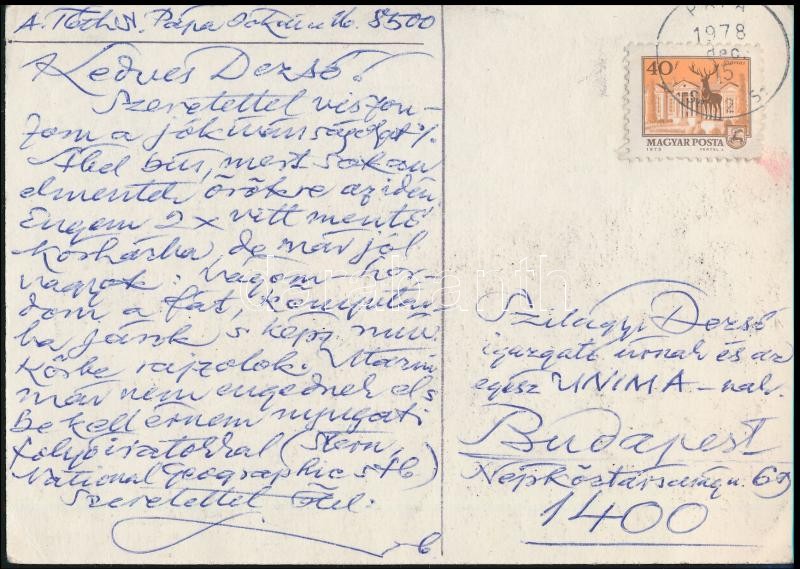 A. Tóth S. Pápa Jókai u. 16. 8500
Kedves Dezső!
Szeretettel viszon-
zom a jókívánságokat
bús, mert sokan
elmentek örökre az idén
Engem 2x vitt mentő
kórházba, de már jól
vagyok: vágom hor-
dom a fát,
ba járok s képz. mű.
körbe rajzolok.
már nem engednek el s
be kell érnem nyugati
folyóiratokkal (Stern,
National Geographic stb)
Szeretettel ölel:
PÁPA
1978
dec.
15
40f
MAGYAR POSTA
1973
VERTEL J.
Szilágyi Dezső
igazgató úrnak és az
egész UNIMA-nak.
Budapest
Népköztársaság u. 69
1400
darabanth